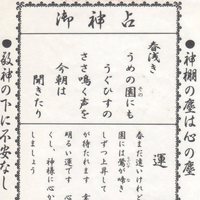 御神占
●神棚の塵は心の塵
春浅き
うめの園にも
その
うぐひすの
ささ鳴く声を
今朝は
聞きたり
運
春まだ遠いけれど
園には鶯が鳴き
しずつ上昇して
が待たれます
明るい運です 心
くし、神様に心か
しましょう
●敬神の下に不安なし